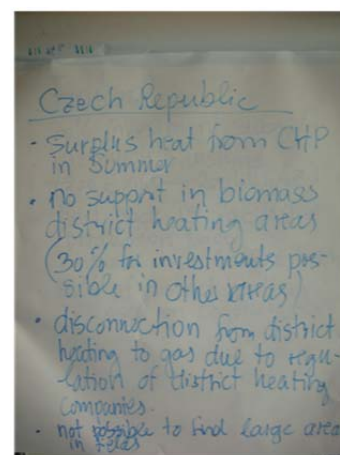 Czech Republic
- Surplus heat from CHP
in Summer
• no support in biomass
district heating areas
(30% for investments pos-
sible in other areas)
• disconnection from district
heating to gas due to regu-
lation of district heating
companies.
- not possible to find large area
in